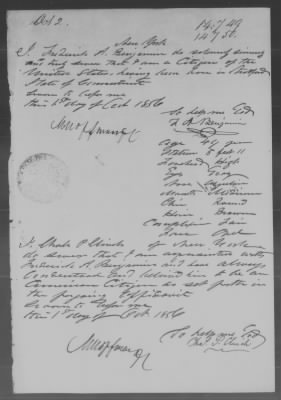 Oct 2.
14749
14750.
New York
I Frederick A. Benjamin do solemnly
and truly swear that I am a Citizen of the
United States, having been born in
State of Connecticut
Sworn to before me
this 1st day of Oct 1856
So help me God
F A Benjamin
Age 49 years
Stature 5 feet 11
Forehead High
Eyes Grey
Nose
Mouth Medium
Chin Round
Hair Brown
Complexion Fair
Face Oval
I Chas P Clinch of New York
do swear that I am acquainted with
Frederick A. Benjamin and have always
considered and believed him to be an
American Citizen as set forth in
the foregoing Affidavit
Sworn to before me
this 1st day of Oct. 1856
So help me God
Chas. P. Clinch